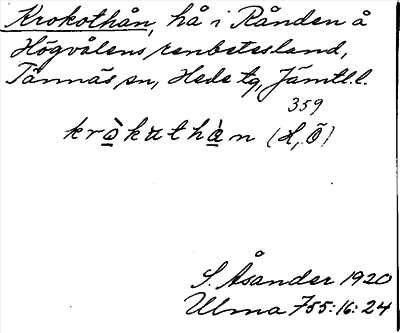 Krokothån, hå i Rånden å
Högvålens renbetesland,
Tännäs sn, Hede tg, Jämtl. l.
359
kròkuthàn (H, Ö)
S. Åsander 1920
Ulma 755:16:24